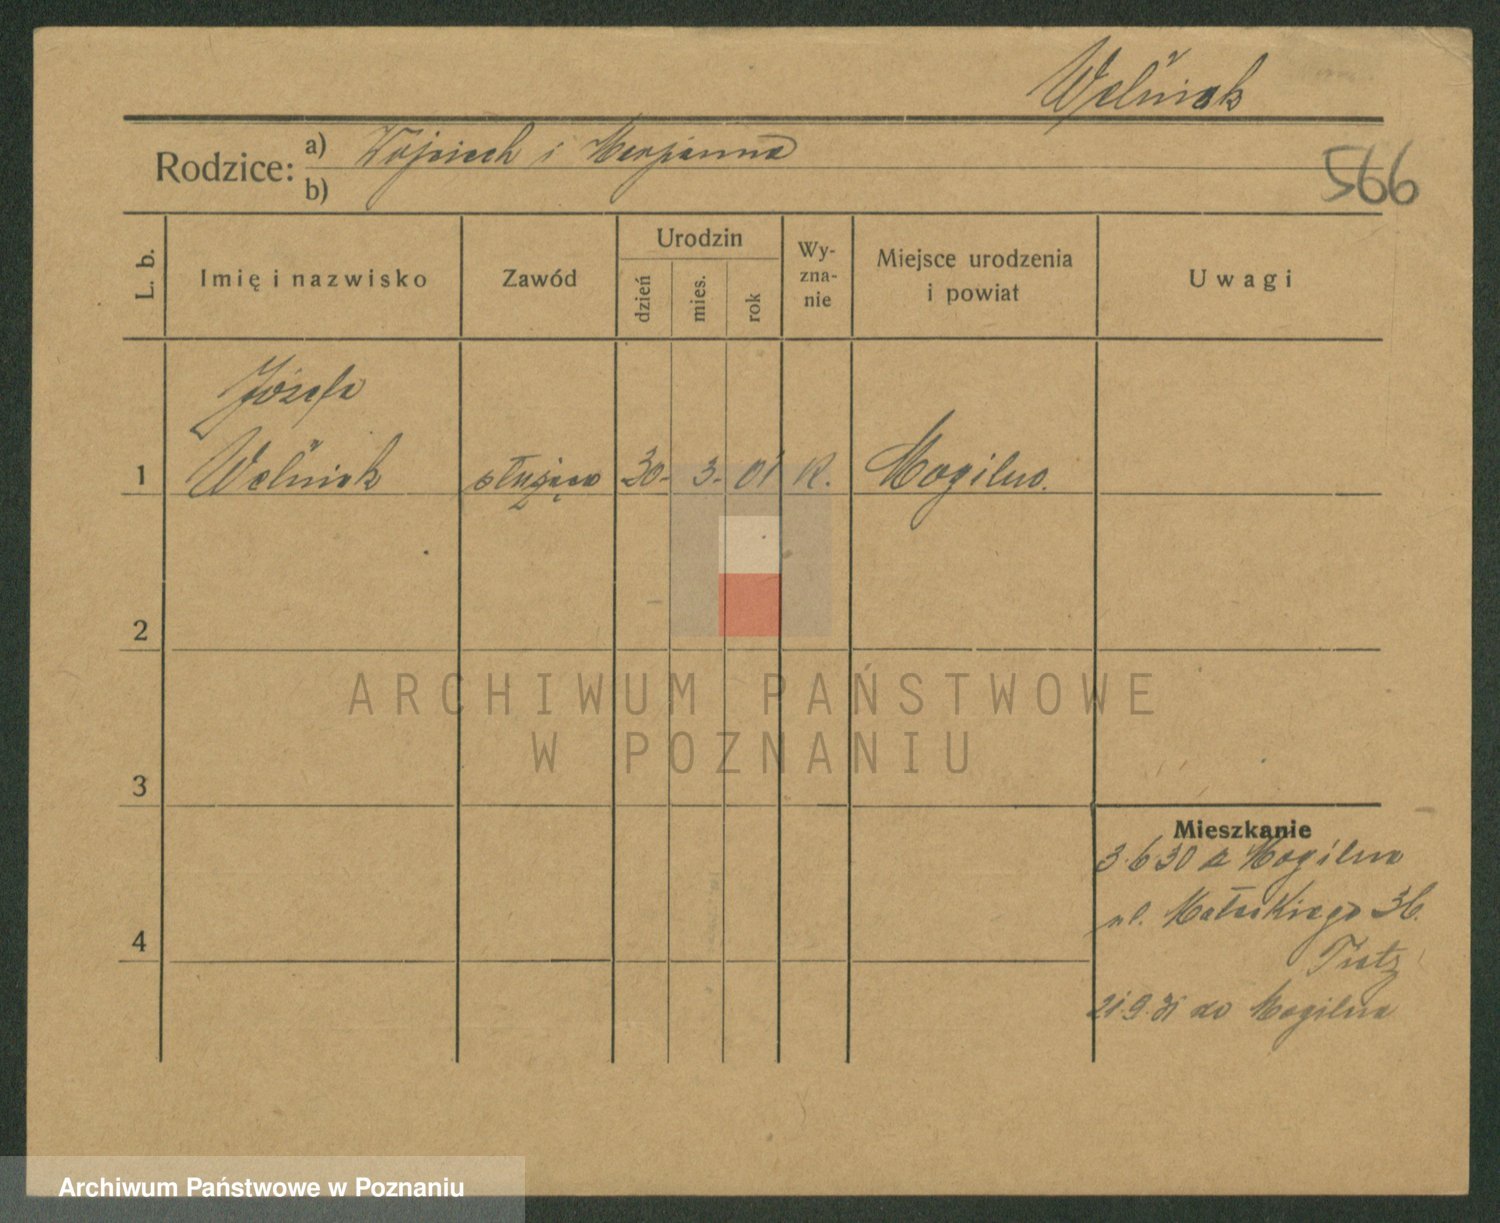 Welniak
Rodzice: a) Wojciech i Marjanna
b)
566
L. b.
Imię i nazwisko
Zawód
Urodzin
dzień
mies.
rok
Wy-
zna-
nie
Miejsce urodzenia
i powiat
Uwagi
Józefa
1 Welniak służąca 30. 3. 01 R. Mogilno.
2
3
4
Mieszkanie
3.6 30 z Mogilna
ul. Małeckiego 36.
Tietz
21.9.31 do Mogilna
ARCHIWUM PAŃSTWOWE
W POZNANIU
Archiwum Państwowe w Poznaniu